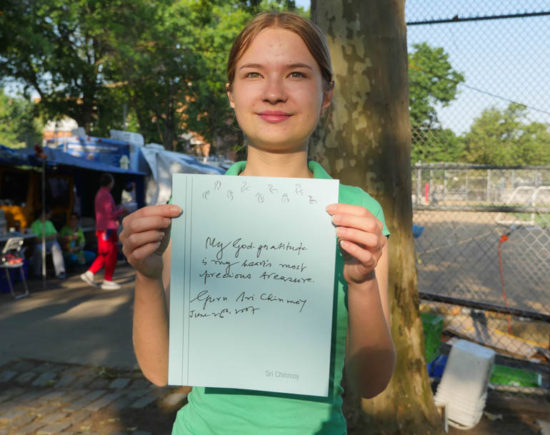 My God-gratitude
is my heart's most
precious treasure.
Guru Sri Chinmoy
June 26th 2007
Sri Chinmoy